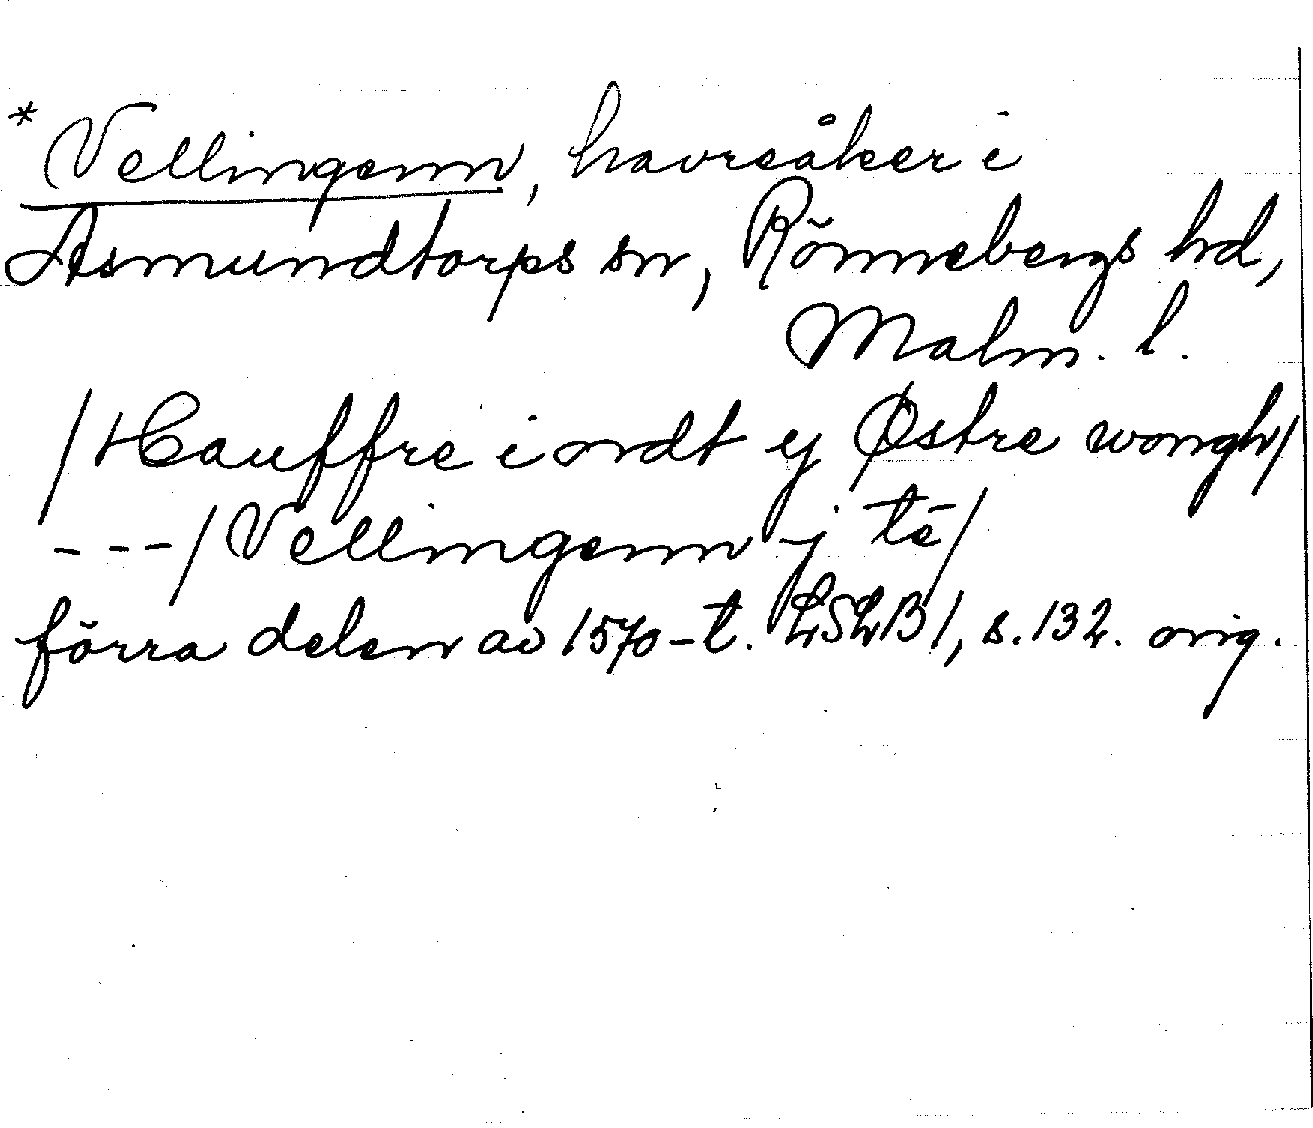 *Vellingenn, havreåker i
Asmundtorps sn, Rönnebergs hd,
Malm. l.
/Hauffre iordt y Østre wongh/
---/Vellingenn j tē/
förra delen av 1570-t. LSLB1, s. 132. orig.